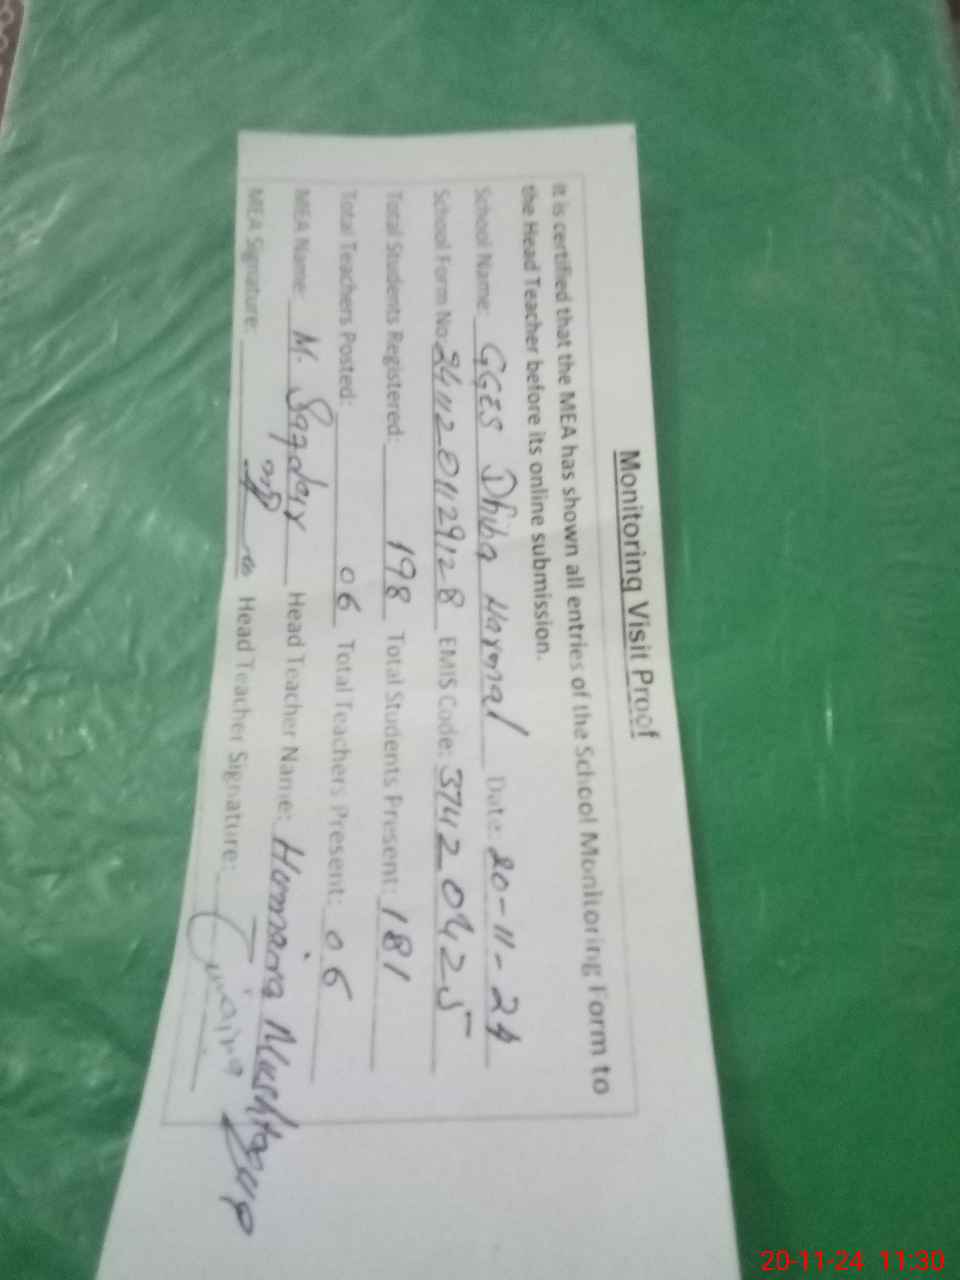 Monitoring Visit Proof
It is certified that the MEA has shown all entries of the School Monitoring Form to
the Head Teacher before its online submission.
School Name: GGES Dhiba Harnal Date: 20-11-24
School Form No: 2411201129128 EMIS Code: 37420425
Total Students Registered: 198 Total Students Present: 181
Total Teachers Posted: 06 Total Teachers Present: 06
MEA Name: M. Safdar Head Teacher Name: Humaira Mushtaq
MEA Signature: Head Teacher Signature: Humaira
20-11-24 11:30